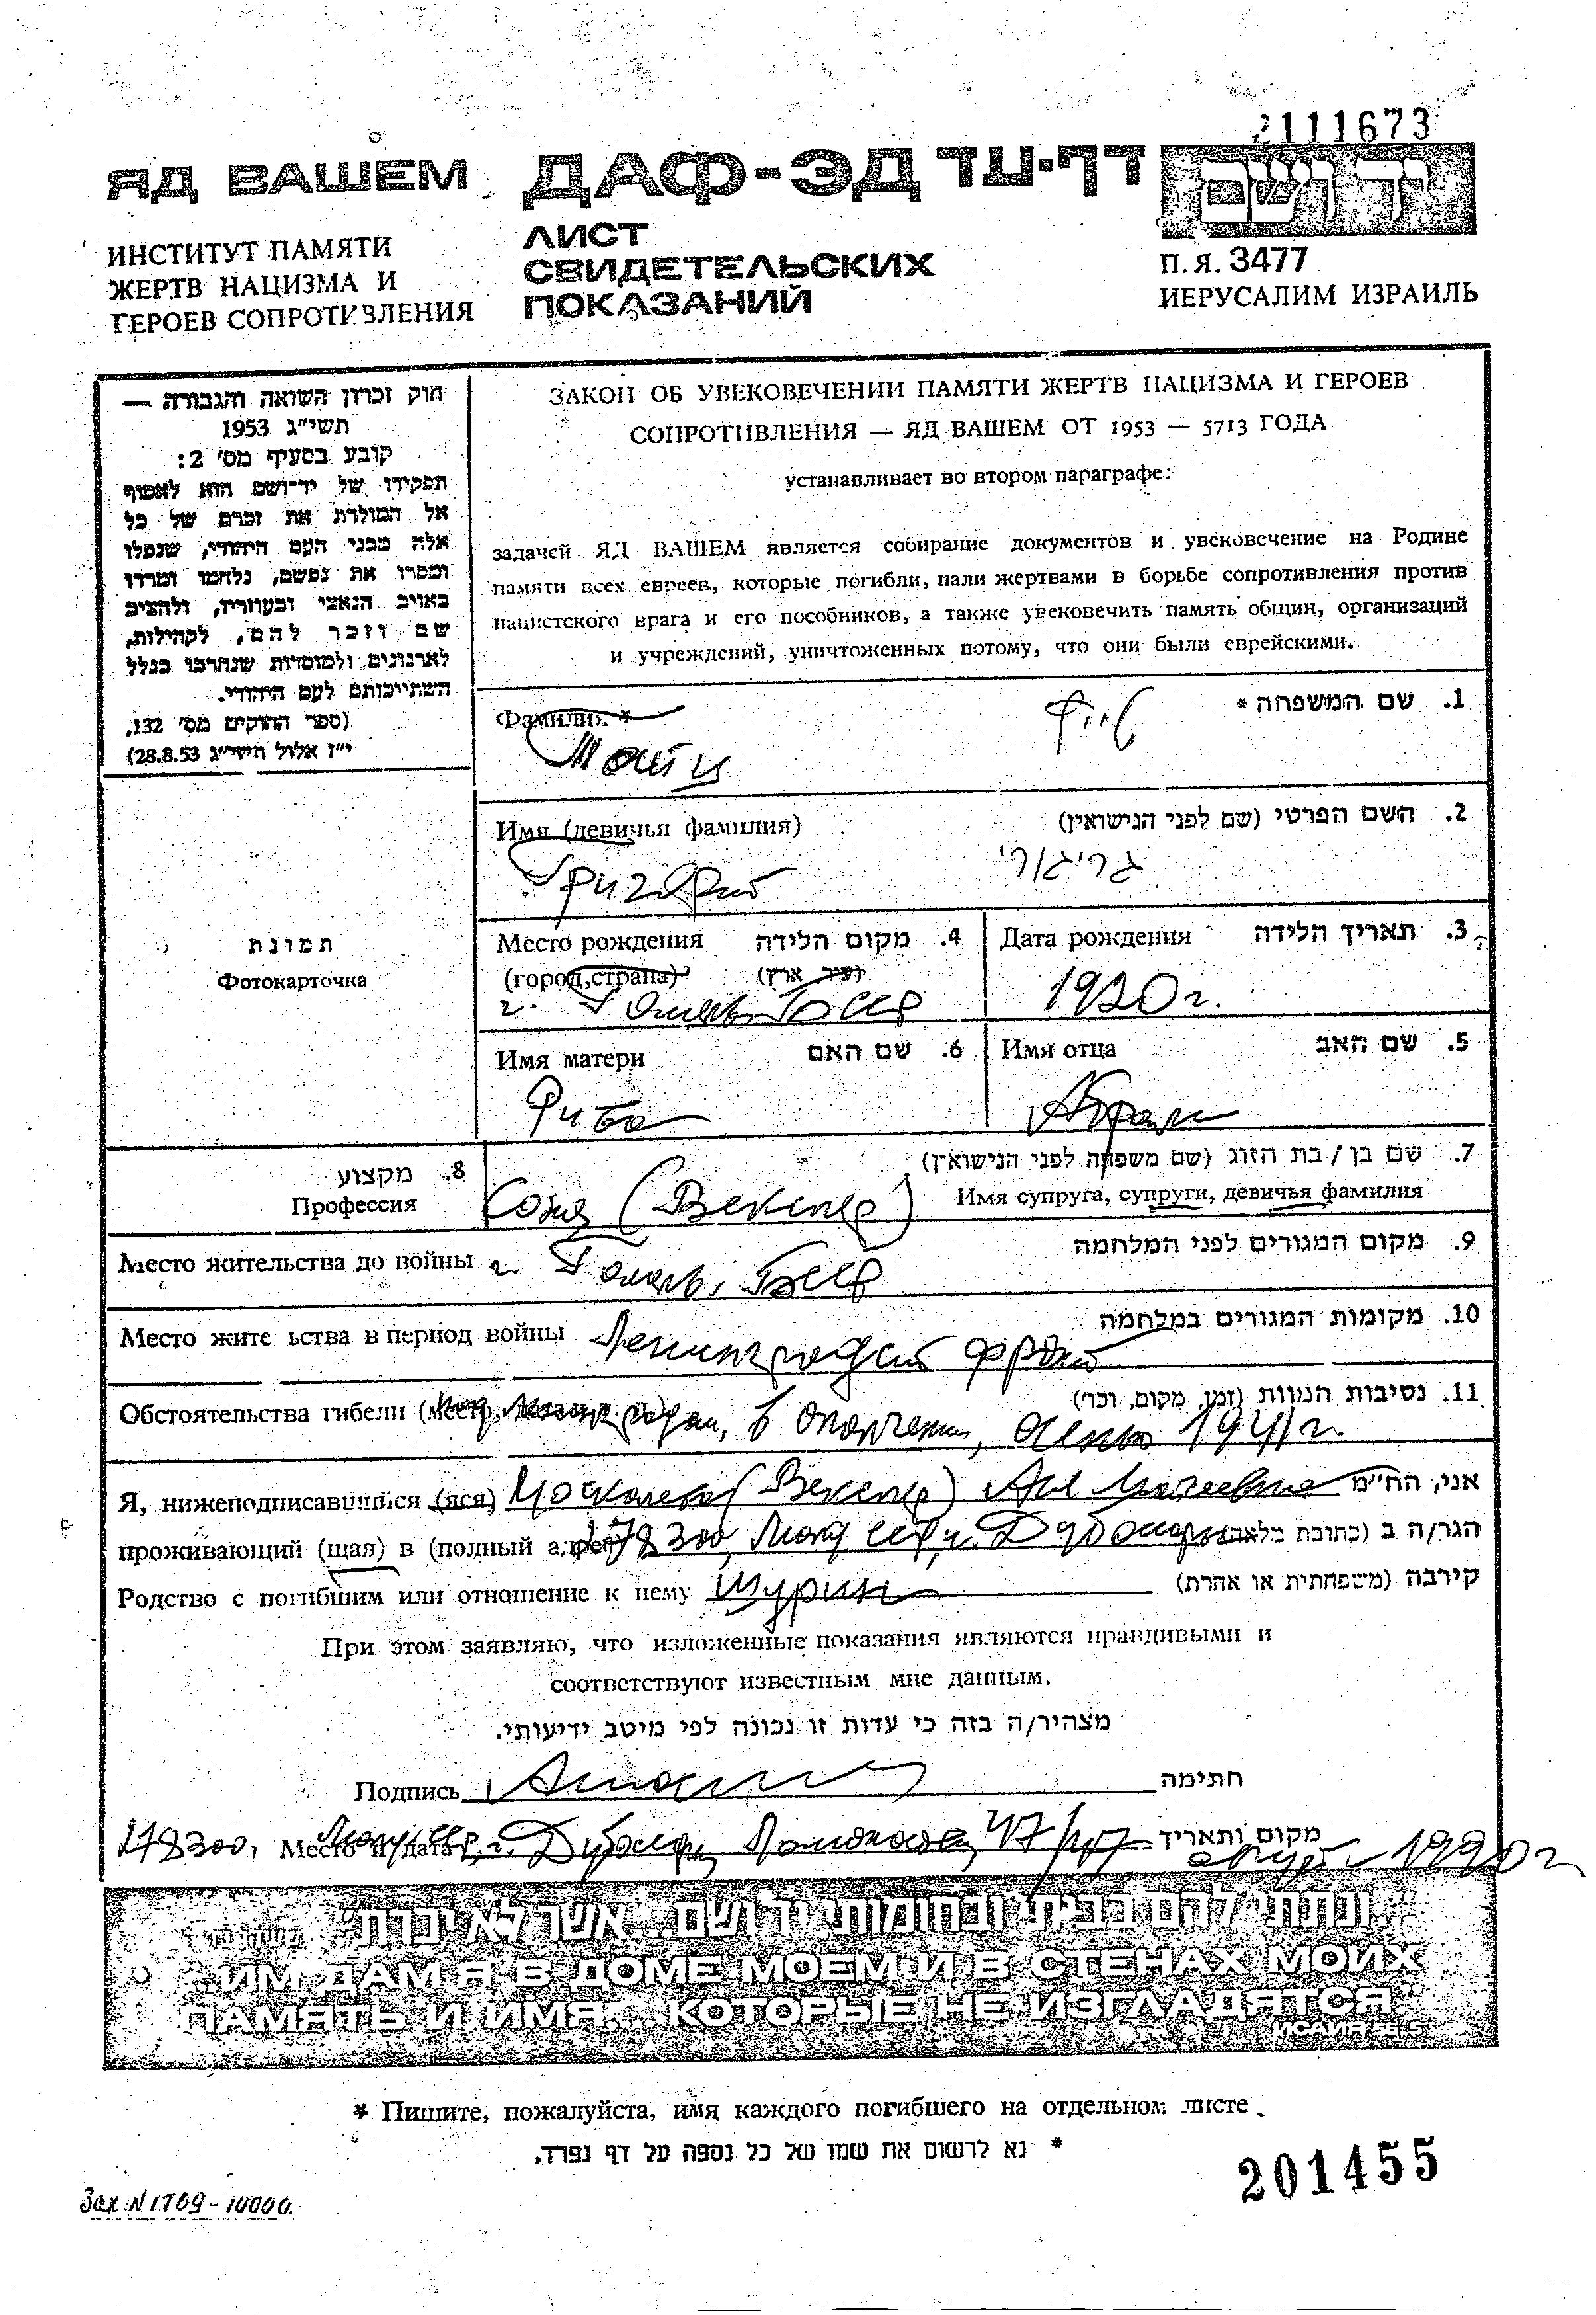 2111673
ЯД ВАШЕМ ДАФ-ЭД דף-עד
יד ושם
ИНСТИТУТ ПАМЯТИ
ЖЕРТВ НАЦИЗМА И
ГЕРОЕВ СОПРОТИВЛЕНИЯ
ЛИСТ
СВИДЕТЕЛЬСКИХ
ПОКАЗАНИЙ
П.Я. 3477
ИЕРУСАЛИМ ИЗРАИЛЬ
חוק זכרון השואה והגבורה —
תשי"ג 1953
קובע בסעיף מס' 2:
תפקידו של יד-ושם הוא לאסוף
אל המולדת את זכרם של כל
אלה מבני העם היהודי, שנפלו
ומסרו את נפשם, נלחמו ומרדו
באויב הנאצי ובעוזריו, ולהציב
שם וזכר להם, לקהילות,
לארגונים ולמוסדות שנחרבו בגלל
השתייכותם לעם היהודי.
(ספר החוקים מס' 132,
י"ז אלול תשי"ג 28.8.53)
ЗАКОН ОБ УВЕКОВЕЧЕНИИ ПАМЯТИ ЖЕРТВ НАЦИЗМА И ГЕРОЕВ
СОПРОТИВЛЕНИЯ — ЯД ВАШЕМ ОТ 1953 — 5713 ГОДА
устанавливает во втором параграфе:
задачей ЯД ВАШЕМ является собирание документов и увековечение на Родине
памяти всех евреев, которые погибли, пали жертвами в борьбе сопротивления против
нацистского врага и его пособников, а также увековечить память общин, организаций
и учреждений, уничтоженных потому, что они были еврейскими.
Фамилия * 1. שם המשפחה *
Имя (девичья фамилия) 2. השם הפרטי (שם לפני הנישואין)
Григорий גריגורי
תמונת
Фотокарточка
Место рождения 4. מקום הלידה
(город, страна) (עיר, ארץ)
г. Гомель БССР
Дата рождения 3. תאריך הלידה
1920 г.
Имя матери 6. שם האם
Рива
Имя отца 5. שם האב
Абрам
8. מקצוע
Профессия
7. שם בן / בת הזוג (שם משפחה לפני הנישואין)
Имя супруга, супруги, девичья фамилия
Соня (Векслер)
Место жительства до войны г. Гомель, БССР 9. מקום המגורים לפני המלחמה
Место жительства в период войны Ленинградский фронт 10. מקומות המגורים במלחמה
Обстоятельства гибели под Ленинградом, в ополчении, осенью 1941 г. 11. נסיבות המוות (זמן, מקום, וכו')
Я, нижеподписавшийся (аяся) (Векслер) אני, הח"מ
проживающий (щая) в (полный адрес) 278300, Молд ССР, г. Дубоссары הגר/ה ב (כתובת מלאה)
Родство с погибшим или отношение к нему шурин קירבה (משפחתית או אחרת)
При этом заявляю, что изложенные показания являются правдивыми и
соответствуют известным мне данным.
מצהיר/ה בזה כי עדות זו נכונה לפי מיטב ידיעותי.
Подпись חתימה
278300, Место и дата г. Дубоссары, Ломоносова, 47/ מקום ותאריך
август 1990 г.
"...ונתתי להם בביתי ובחומותי יד ושם... אשר לא יכרת"
"...ИМ ДАМ Я В ДОМЕ МОЕМ И В СТЕНАХ МОИХ
ПАМЯТЬ И ИМЯ... КОТОРЫЕ НЕ ИЗГЛАДЯТСЯ"
ИСАЙЯ 56.5
* Пишите, пожалуйста, имя каждого погибшего на отдельном листе.
* נא לרשום את שמו של כל נספה על דף נפרד.
201455
Зак. N 1709-10000.